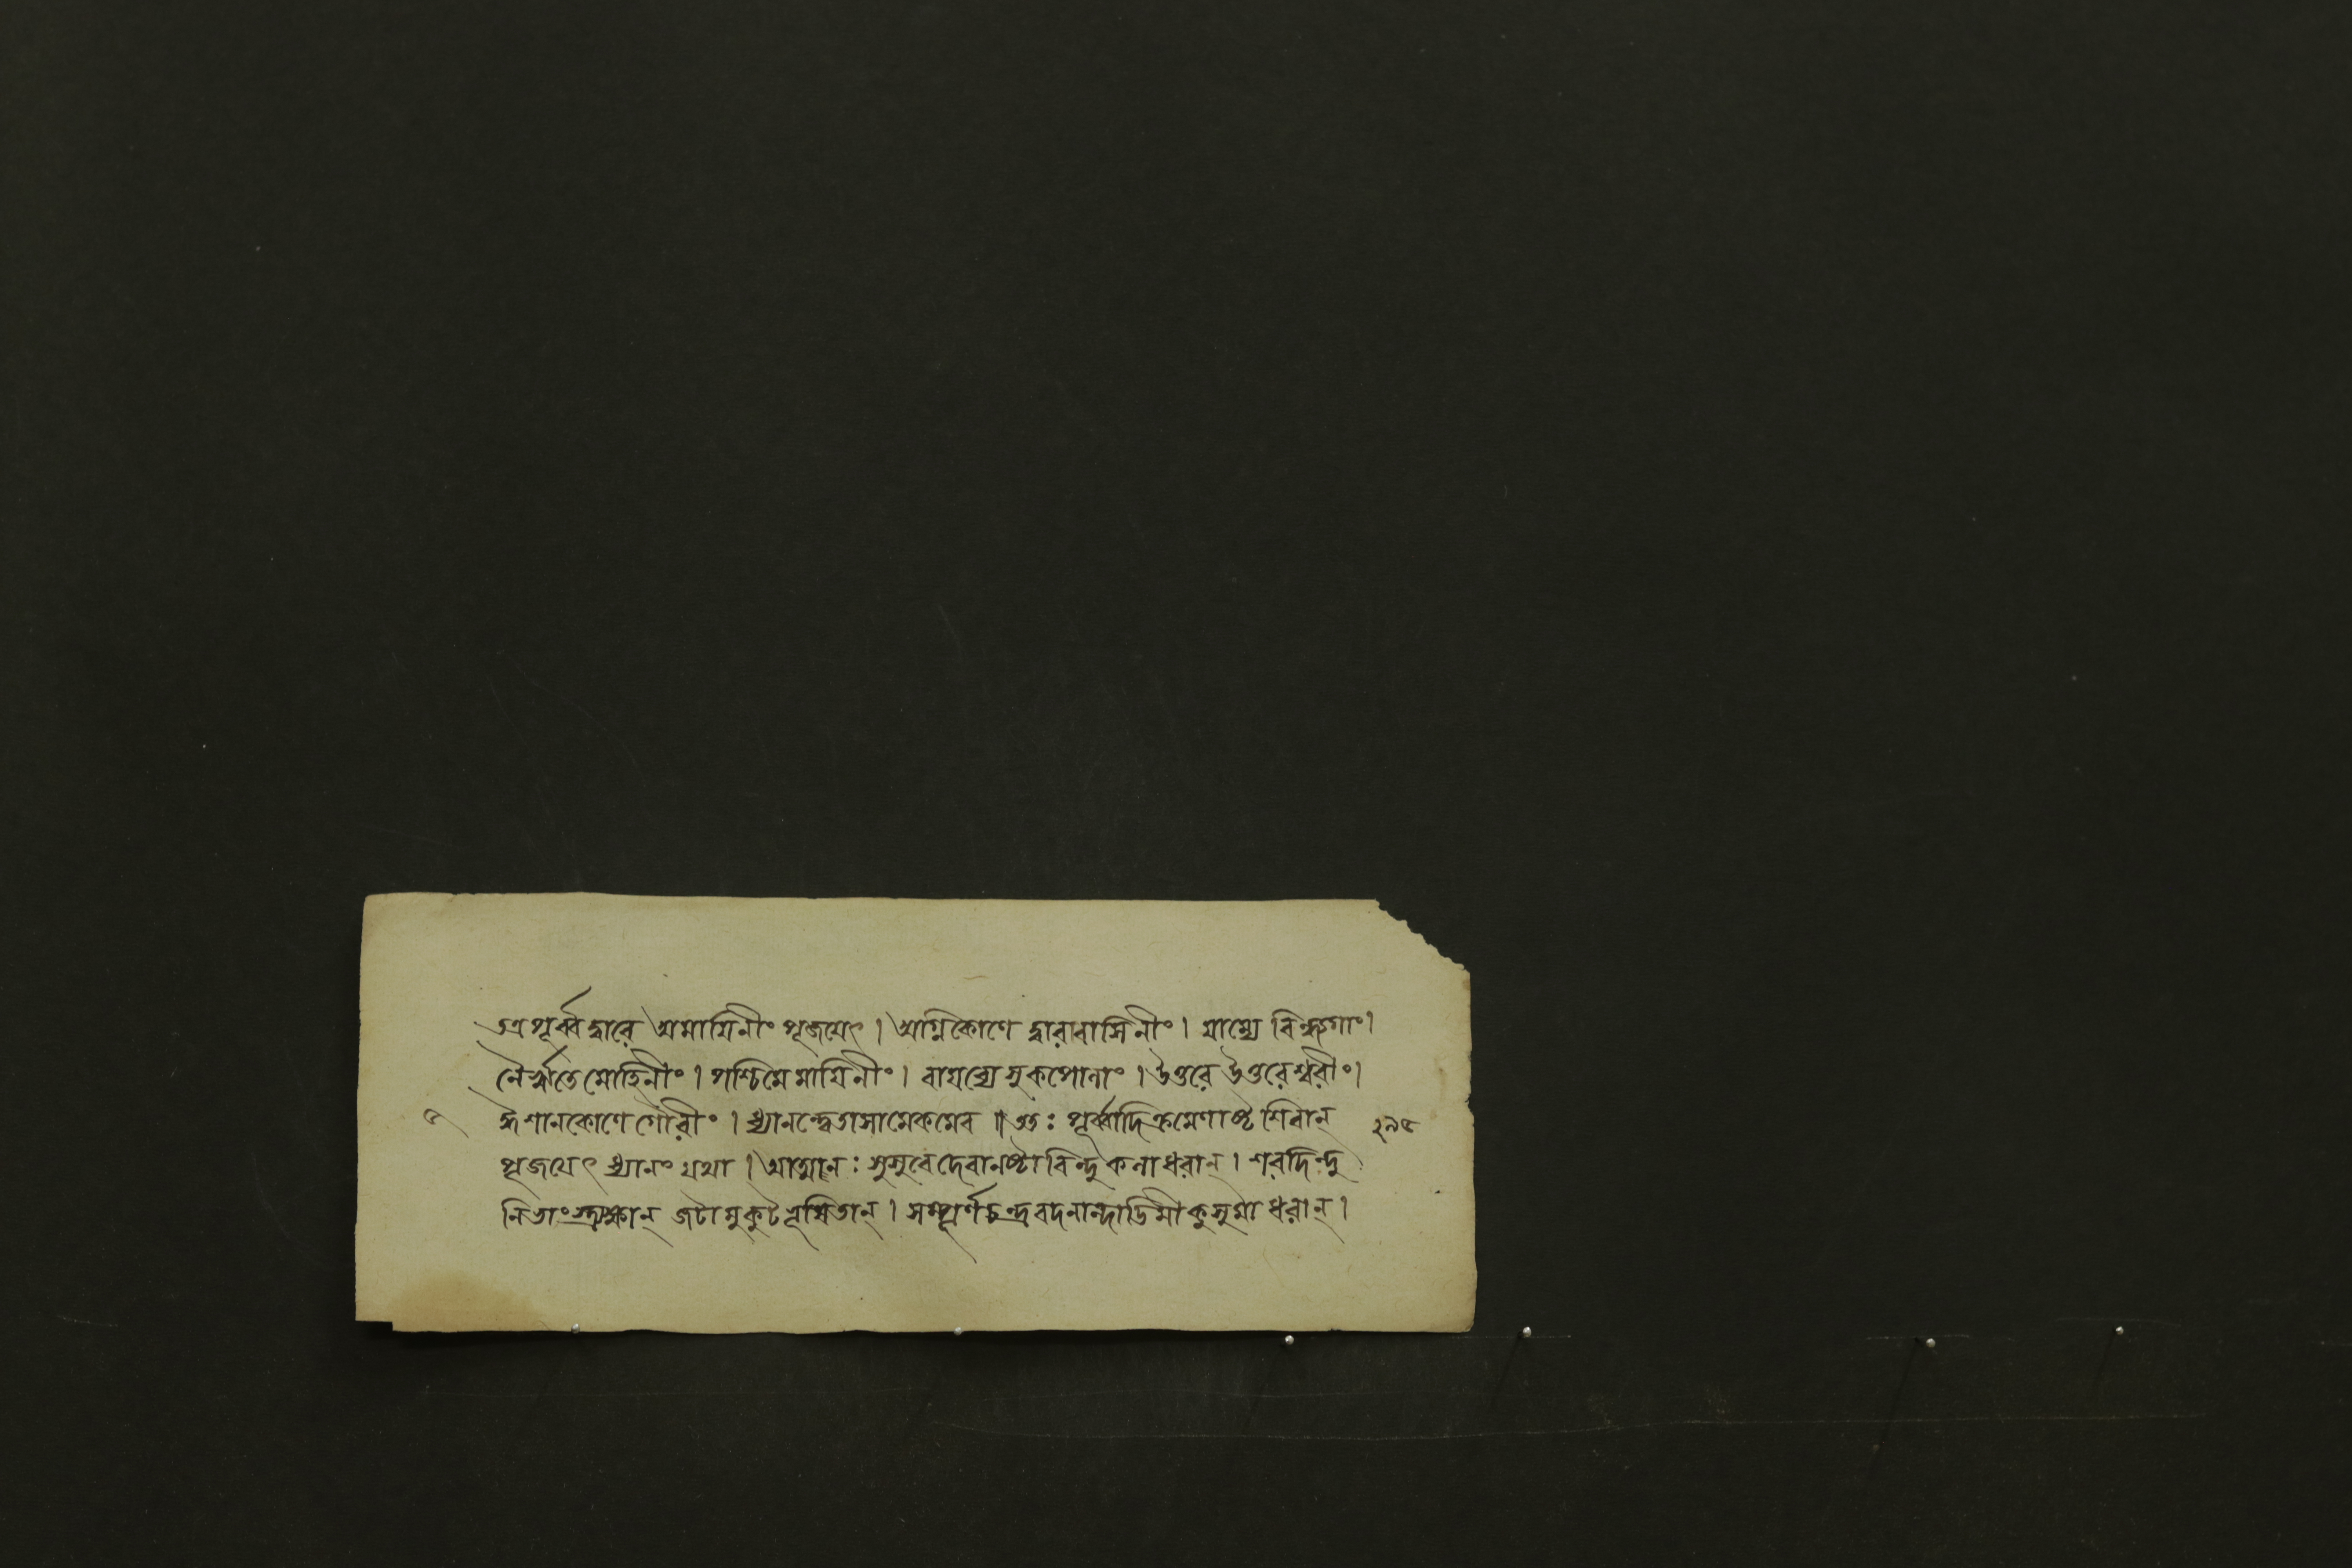 তত্র পূর্ব্বদ্বারে অমায়িনীং পূজয়েৎ। অগ্নিকোণে দ্বারবাসিনীং। যাম্যে
নৈঋতে মোহিনীং। পশ্চিমে মায়িনীং। বায়ব্যে সুকপোলাং। উত্তরে উত্তরেশ্বরীং।
ঈশানকোণে গৌরীং। ধ্যানন্ত্বেতাসামেকমেব॥ ততঃ পূর্ব্বাদিক্রমেণাষ্টশিবান্
পূজয়েৎ ধ্যানং যথা। বিন্দুকলাধরান্। শরদিন্দু
জটামুকুটভূষিতান্। সম্পূর্ণচন্দ্রবদনান্দাড়িমীকুসুমাধরান্।